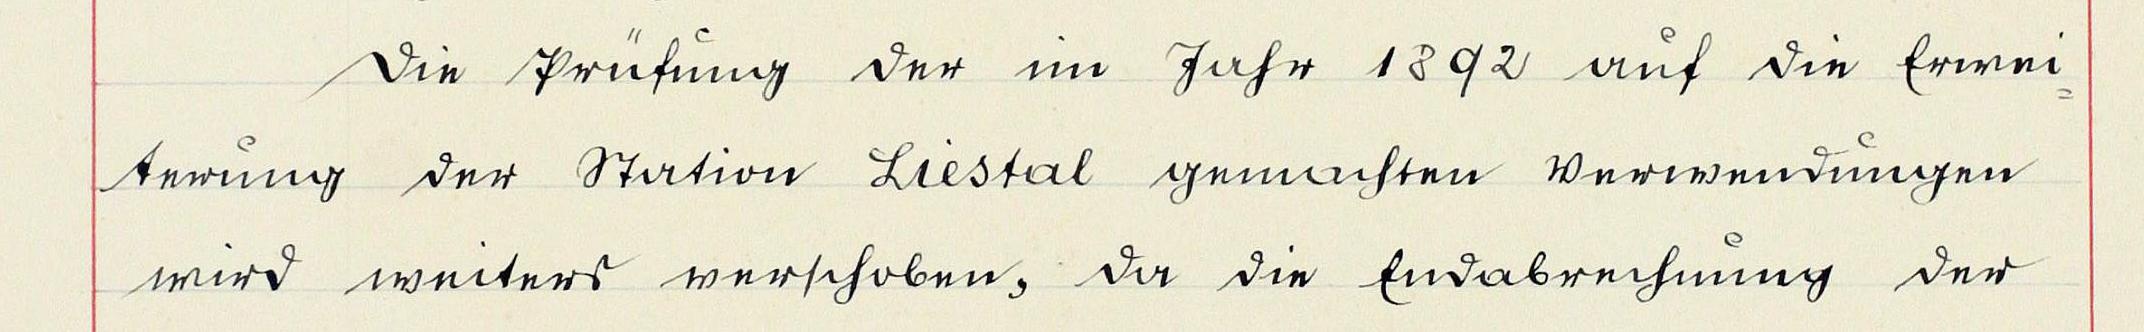 Die Prüfung der im Jahr 1892 auf die Erwei=
terung der Station Liestal gemachten Verwendungen
wird weiters verschoben, da die Endabrechnung der